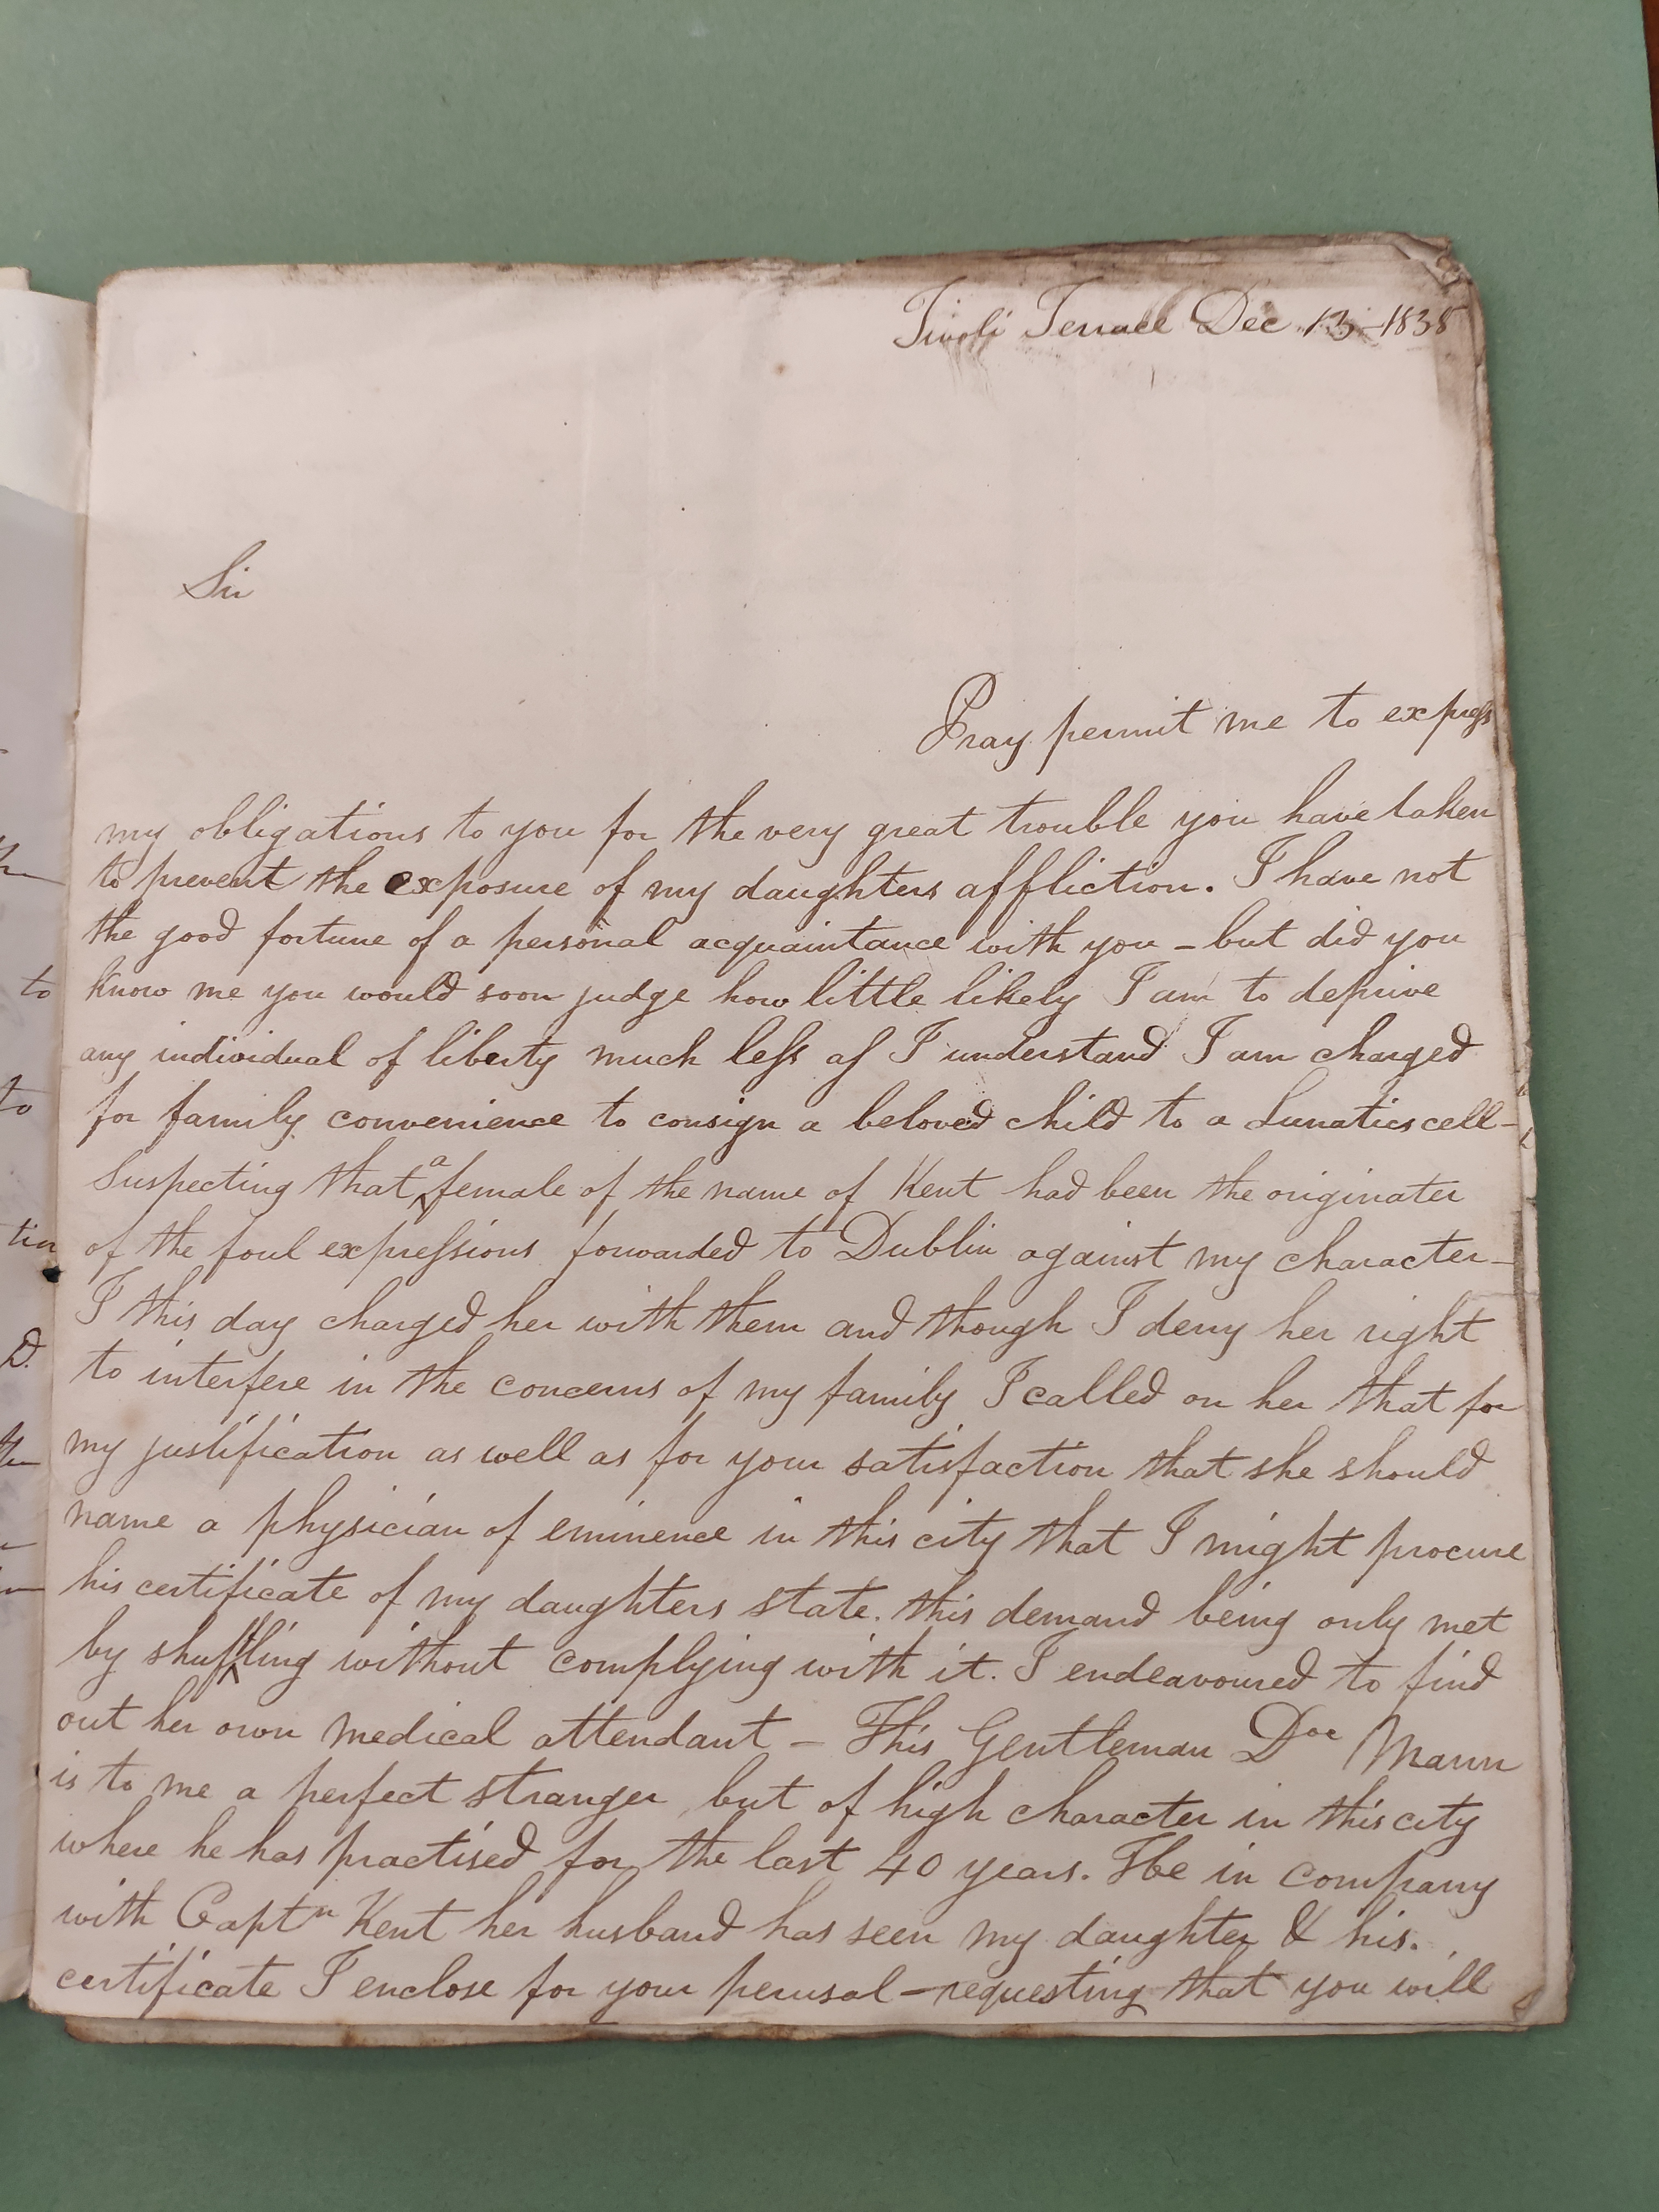 Tivoli Terrace Dec 13 - 1838
Sir
Pray permit me to express
my obligations to you for the very great trouble you have taken
to prevent the exposure of my daughters affliction. I have not
the good fortune of a personal acquaintance with you - but did you
know me you would soon judge how little likely I am to deprive
any individual of liberty much less as I understand I am charged
for family convenience to consign a beloved child to a Lunatics cell -
Suspecting that a female of the name of Kent had been the originater
of the foul expressions forwarded to Dublin against my character -
I this day charged her with them and though I deny her right
to interfere in the concerns of my family I called on her that for
my justification as well as for your satisfaction that she should
name a physician of eminence in this city that I might procure
his certificate of my daughters state. this demand being only met
by shuffling without complying with it. I endeavoured to find
out her own medical attendant - This Gentleman Doc Mann
is to me a perfect stranger, but of high character in this city
where he has practised for the last 40 years. He in company
with Captn Kent her husband has seen my daughter & his.
certificate I enclose for your perusal - requesting that you will
to
to
tin
D.